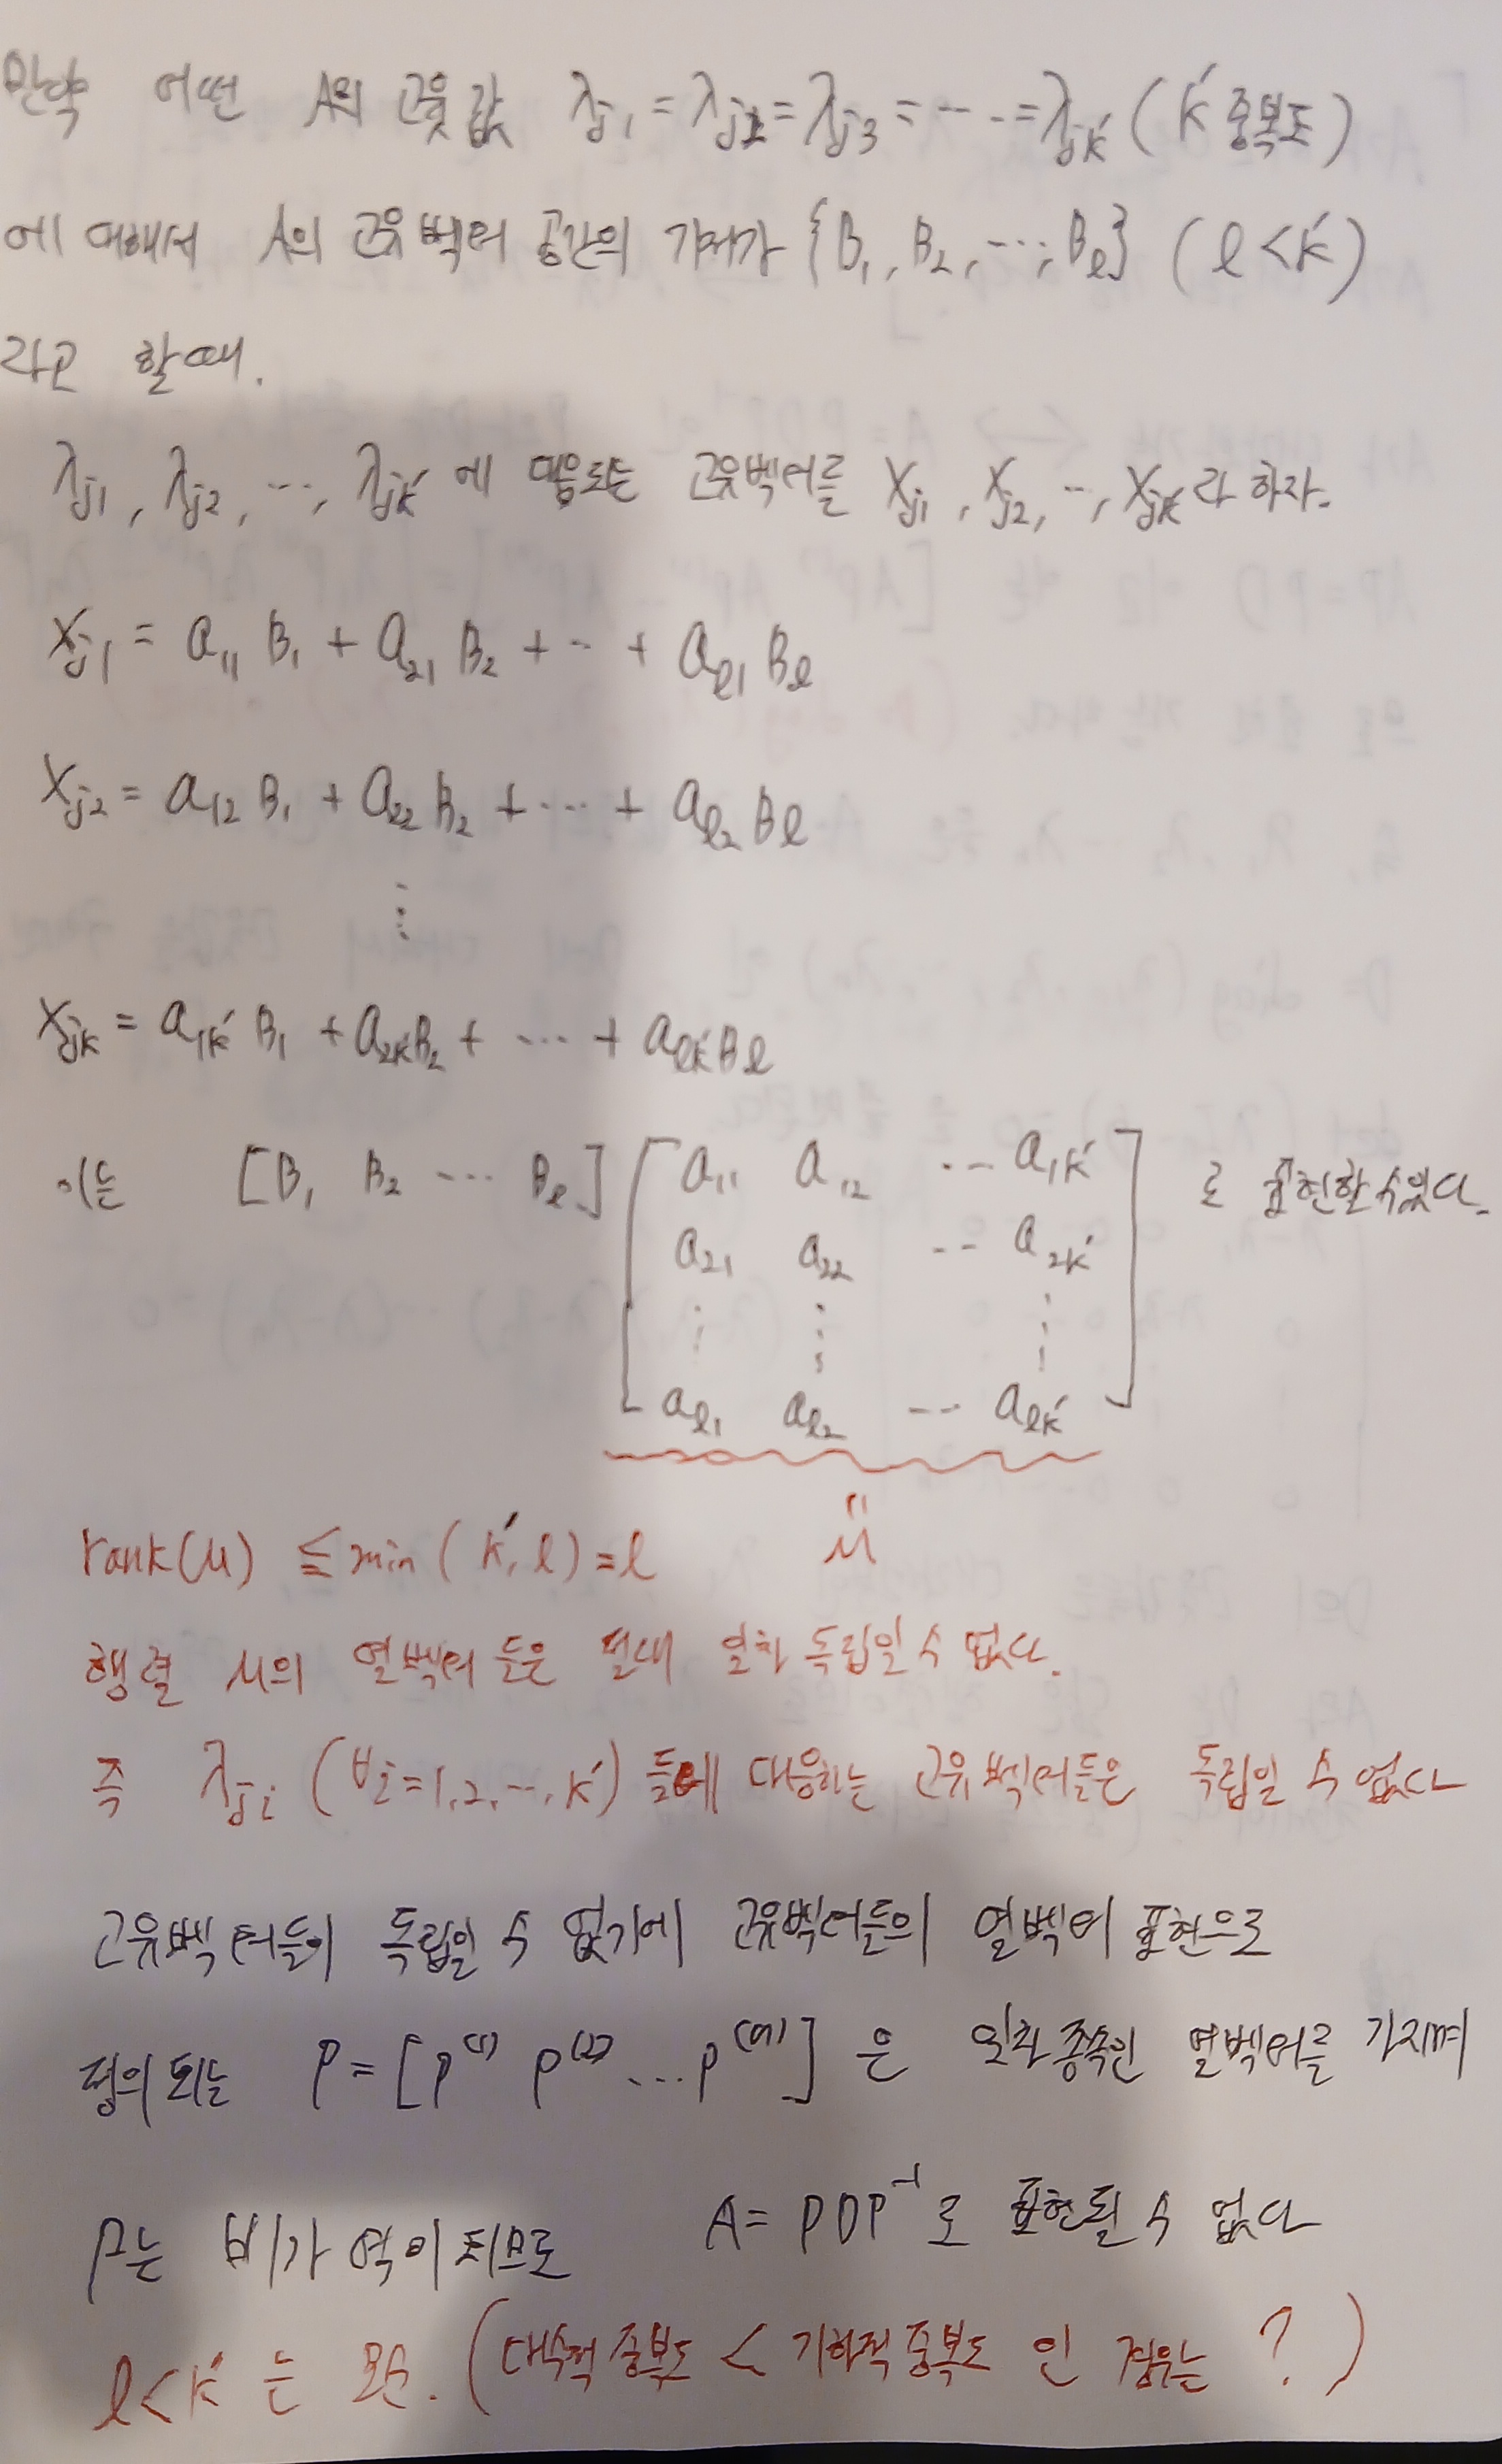 만약 어떤 A의 고윳값 λj1 = λj2 = λj3 = ··· = λjk' (k' 중복도)
에 대해서 A의 고유벡터 공간의 기저가 {B1, B2, ···, Bℓ} (ℓ < k')
라고 할때.
λj1, λj2, ···, λjk' 에 대응되는 고유벡터를 Xj1, Xj2, ··, Xjk' 라 하자.
Xj1 = a11 B1 + a21 B2 + ·· + aℓ1 Bℓ
Xj2 = a12 B1 + a22 B2 + ··· + aℓ2 Bℓ
⋮
Xjk' = a1k' B1 + a2k' B2 + ··· + aℓk' Bℓ
이는 [B1 B2 ··· Bℓ] [a11 a12 ·· a1k' 로 표현할 수 있다.
a21 a22 ·· a2k'
⋮ ⋮ ⋮
aℓ1 aℓ2 ·· aℓk']
rank(M) ≦ min(k', ℓ) = ℓ
"M
행렬 M의 열벡터 들은 절대 일차 독립일 수 없다.
즉 λji (∀i=1,2,··,k') 들에 대응하는 고유벡터들은 독립일 수 없다
고유벡터들이 독립일 수 없기에 고유벡터들의 열벡터 표현으로
정의 되는 P = [P^(1) P^(2) ··· P^(n)] 은 일차 종속인 열벡터를 가지며
P는 비가역이 되므로 A = PDP^-1 로 표현될 수 없다
ℓ<k' 는 모순. (대수적 중복도 < 기하적 중복도 인 경우는 ?)